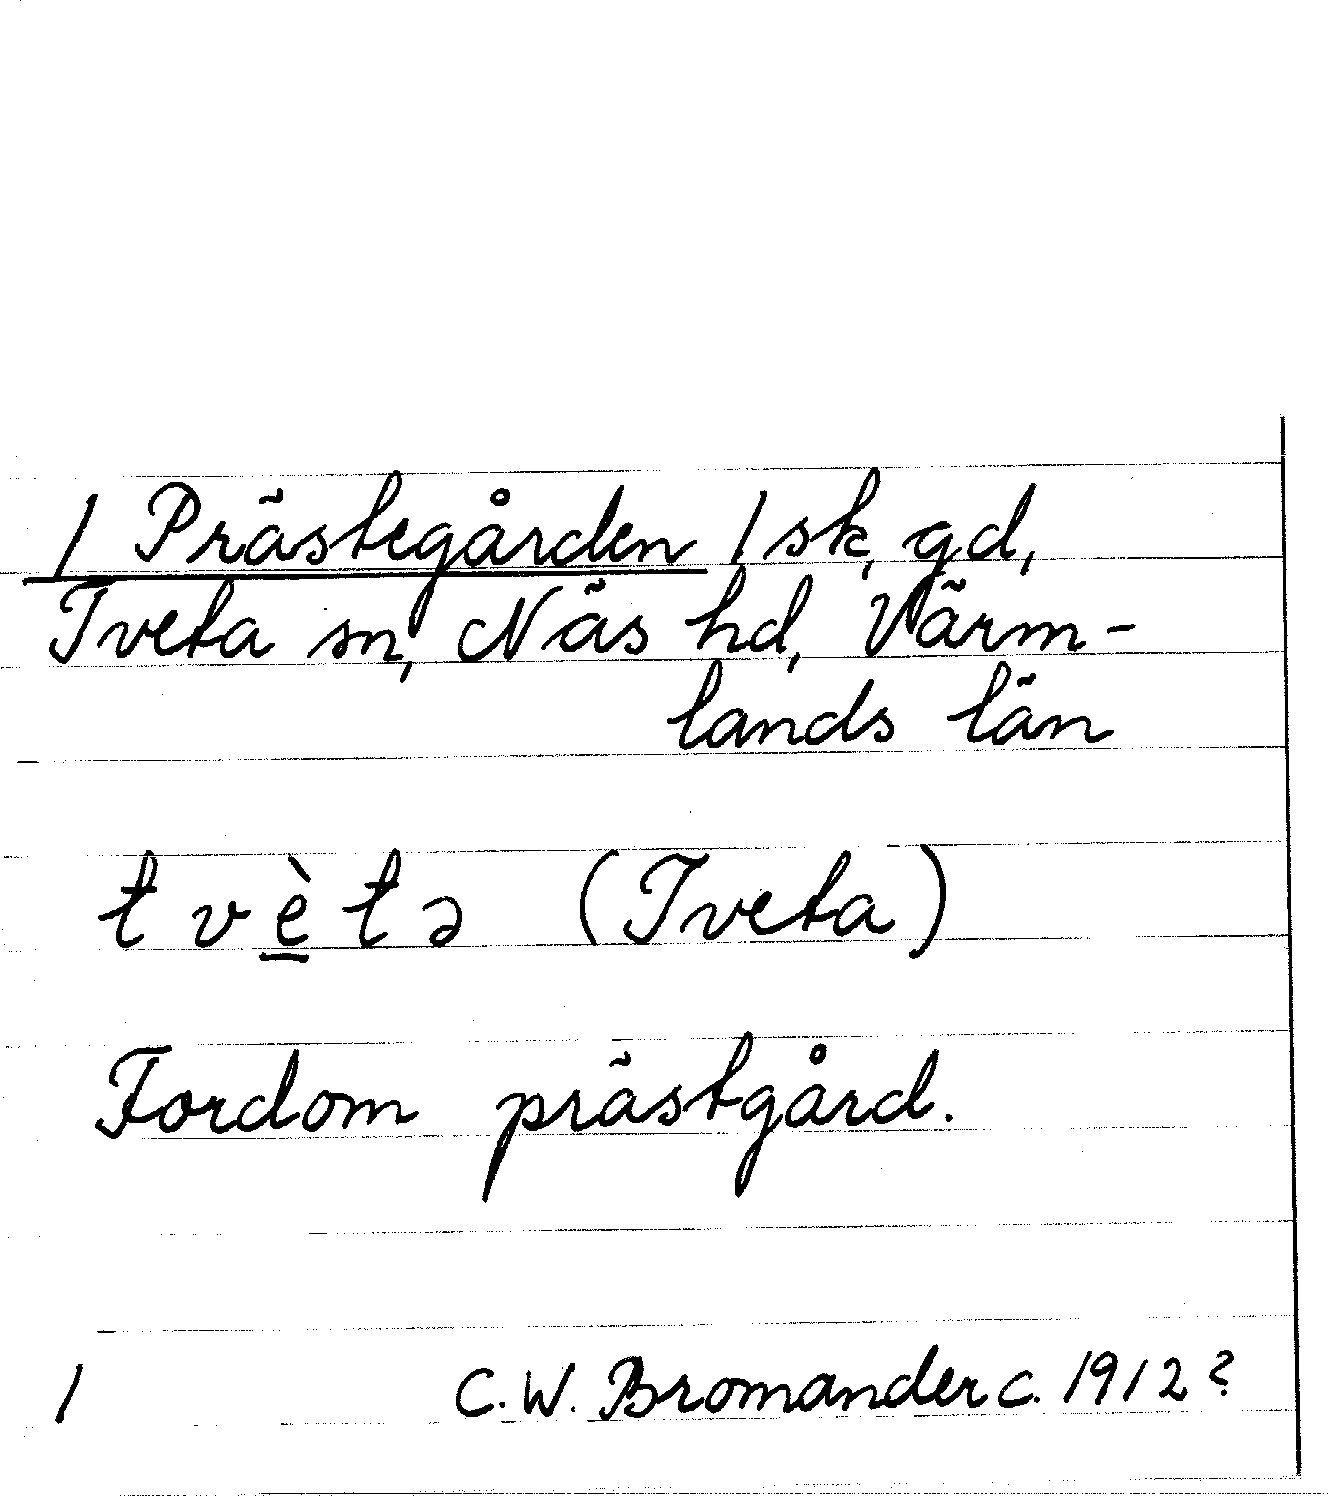 1 Prästegården 1 sk, gd,
Tveta sn, Näs hd, Värm-
lands län
t v è t ə (Tveta)
Fordom prästgård.
1 C.W. Bromander c. 1912?